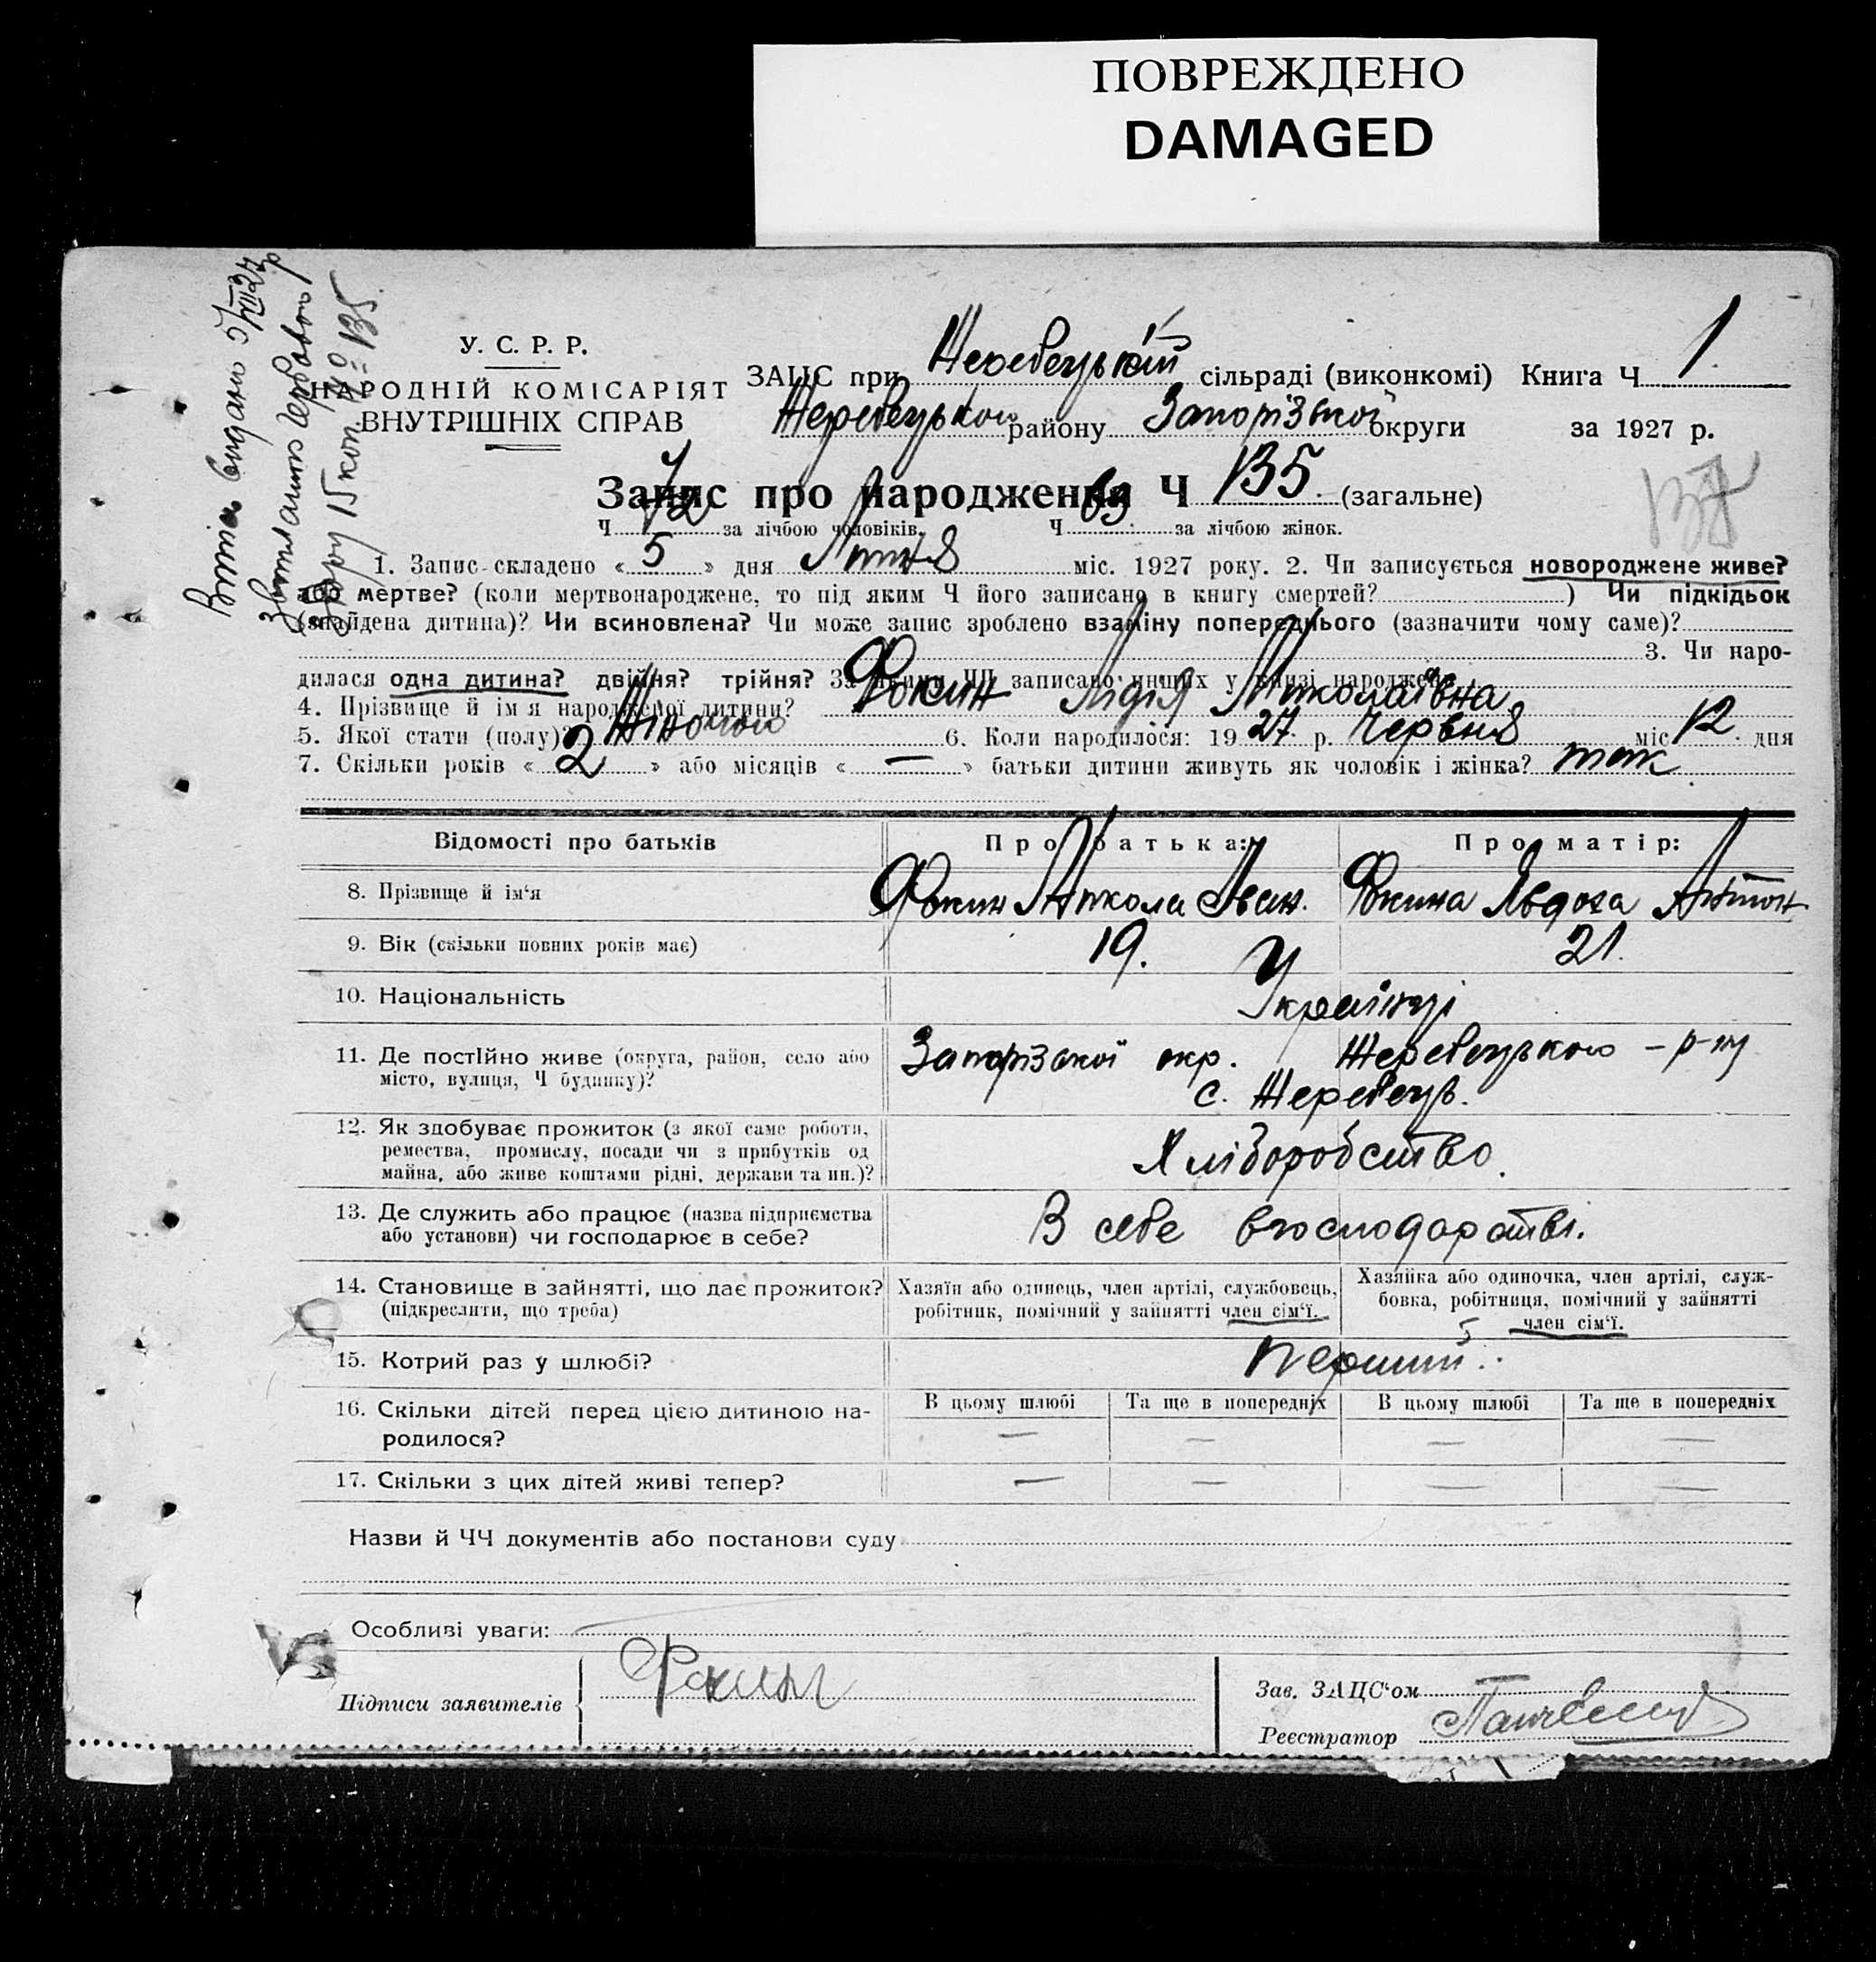 ПОВРЕЖДЕНО
DAMAGED
Витяг видано 5/VII 27 р
У. С. Р. Р.
НАРОДНІЙ КОМІСАРІЯТ
ВНУТРІШНІХ СПРАВ
ЗАЦС при Жеребецькій сільраді (виконкомі) Книга Ч 1.
Жеребецького району Запорізької округи за 1927 р.
Запис про народження Ч 135. (загальне)
Ч 72 за лічбою чоловіків. Ч 63. за лічбою жінок.
1. Запис складено « 5 » дня Липня міс. 1927 року. 2. Чи записується новороджене живе?
або мертве? (коли мертвонароджене, то під яким Ч його записано в книгу смертей? ) Чи підкідьок
(знайдена дитина)? Чи всиновлена? Чи може запис зроблено взаміну попереднього (зазначити чому саме)?
3. Чи наро-
дилася одна дитина? двійня? трійня? За якими ЧЧ записано инших у книзі народжень
4. Прізвище й ім'я народженої дитини? Фокин Лідія Миколаївна
5. Якої стати (полу)? Жіночою 6. Коли народилося: 19 27 р. Червня міс 12 дня
7. Скільки років « 2 » або місяців « — » батьки дитини живуть як чоловік і жінка? так
Відомості про батьків Про батька: Про матір:
8. Прізвище й ім'я Фокин Микола Іван. Фокина Явдоха Антон
9. Вік (скільки повних років має) 19. 21.
10. Національність Українці
11. Де постійно живе (округа, район, село або Запорізької окр. Жеребецького – р-ну
місто, вулиця, Ч будинку)? с. Жеребець.
12. Як здобуває прожиток (з якої саме роботи,
ремества, промислу, посади чи з прибутків од Хліборобство.
майна, або живе коштами рідні, держави та ин.)?
13. Де служить або працює (назва підприємства В себе в господарстві.
або установи) чи господарює в себе?
14. Становище в зайнятті, що дає прожиток? Хазяїн або одинець, член артілі, службовець, Хазяйка або одиночка, член артілі, служ-
(підкреслити, що треба) робітник, помічний у зайнятті член сім'ї. бовка, робітниця, помічний у зайнятті
член сім'ї.
15. Котрий раз у шлюбі? Перший.
16. Скільки дітей перед цією дитиною на- В цьому шлюбі Та ще в попередніх В цьому шлюбі Та ще в попередніх
родилося? — — — —
17. Скільки з цих дітей живі тепер? — — — —
Назви й ЧЧ документів або постанови суду
Особливі уваги:
Підписи заявителів Фокин
Зав. ЗАЦС'ом
Реєстратор